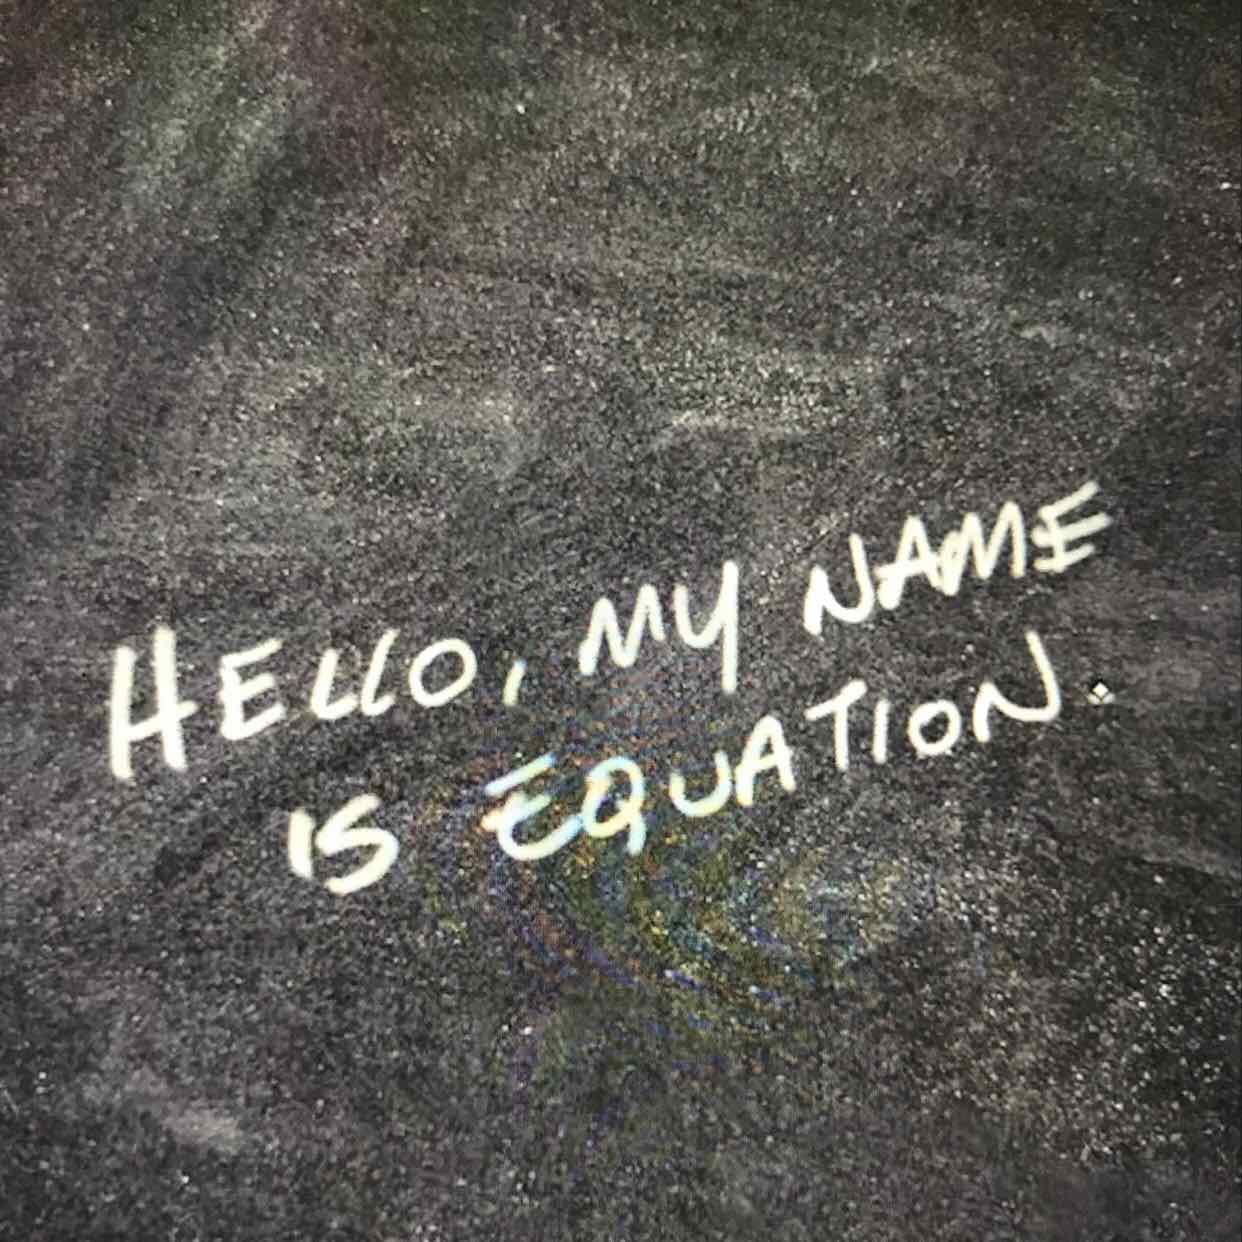 HELLO, MY NAME
IS EQUATION.